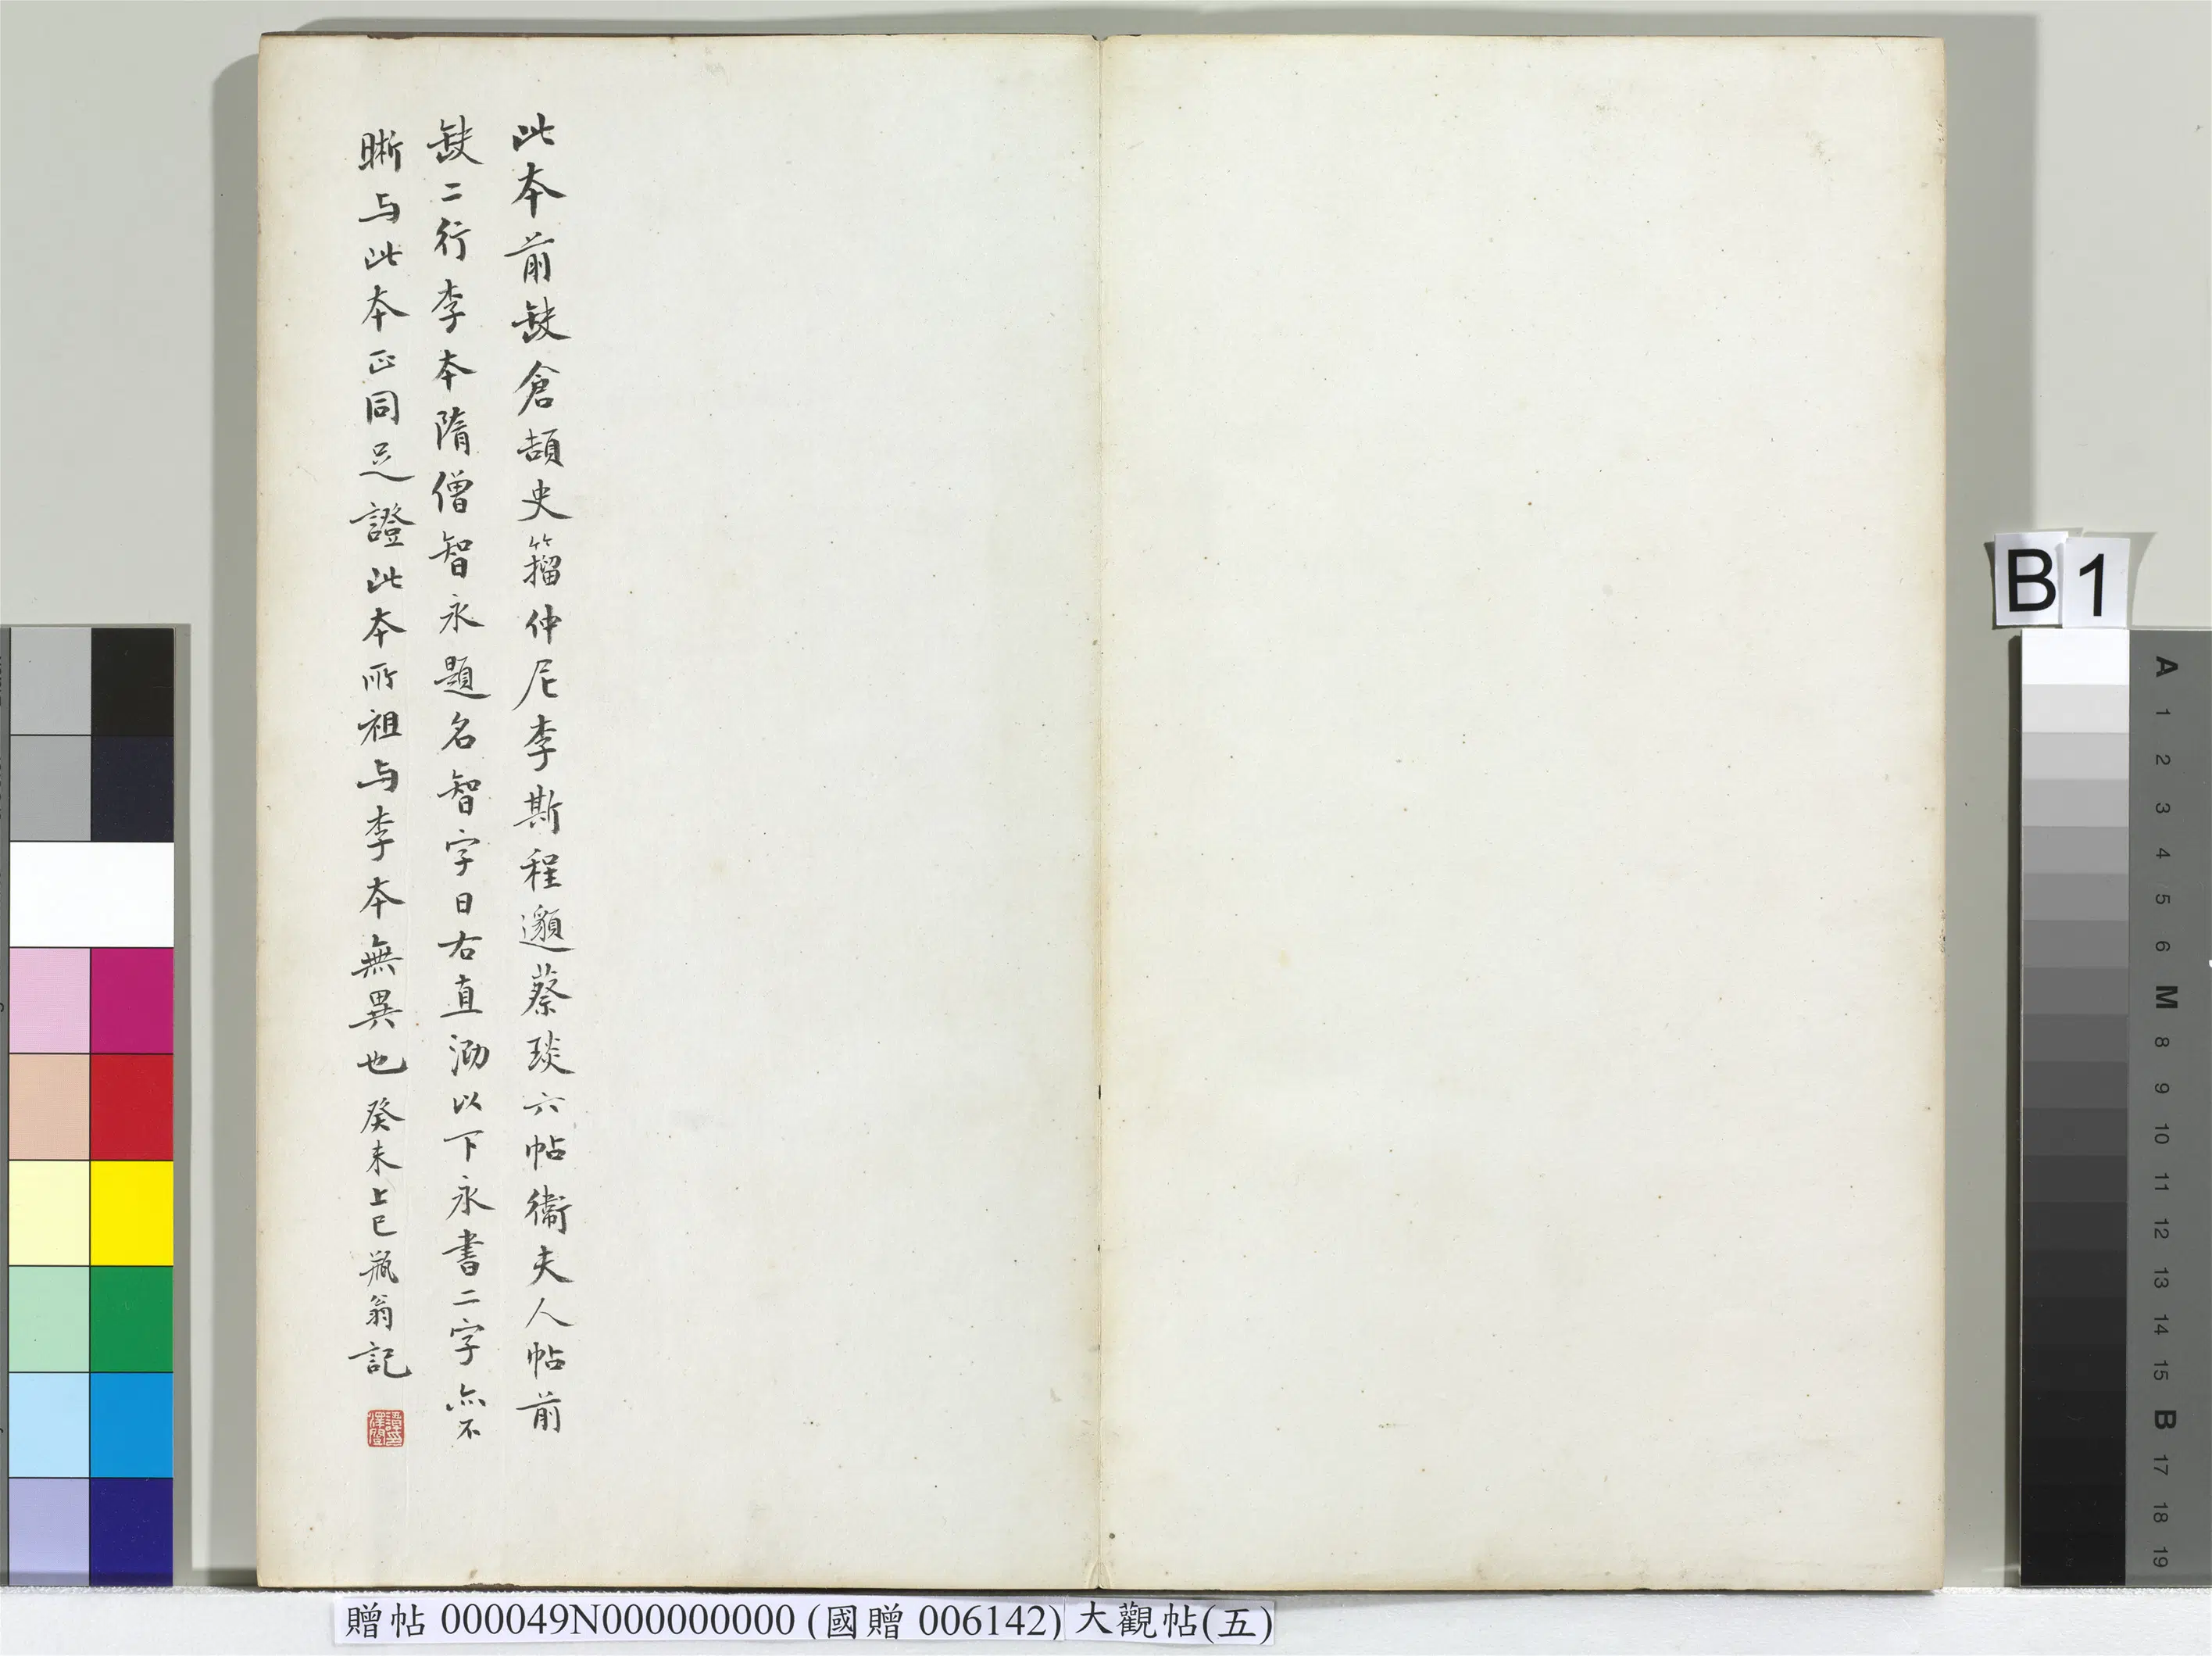 此本前缺倉頡史籀仲尼李斯程邈蔡琰六帖衞夫人帖前
缺二行李本隋僧智永題名智字日右直泐以下永書二字亦不
晰与此本正同足證此本所祖与李本無異也 癸未上巳瓶翁記
B1
A 1 2 3 4 5 6 M 8 9 10 11 12 13 14 15 B 17 18 19
贈帖 000049N000000000 (國贈 006142) 大觀帖(五)